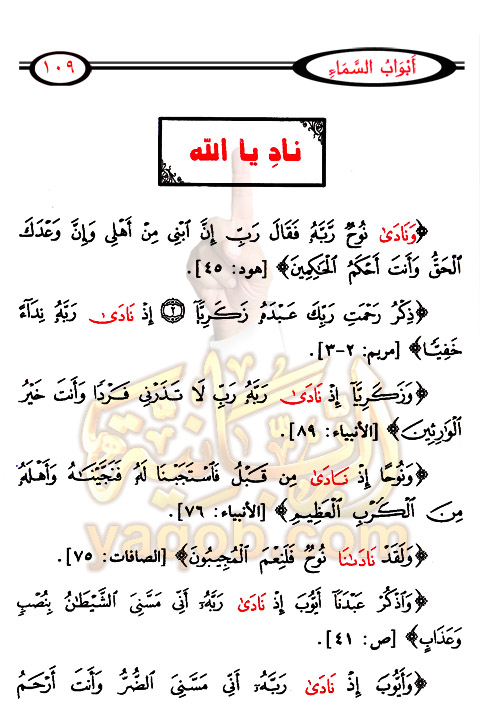 أَبْوَابُ السَّمَاءِ
١٠٩
نادِ يا الله
﴿وَنَادَىٰ نُوحٌ رَّبَّهُ فَقَالَ رَبِّ إِنَّ ٱبْنِى مِنْ أَهْلِى وَإِنَّ وَعْدَكَ
ٱلْحَقُّ وَأَنتَ أَحْكَمُ ٱلْحَٰكِمِينَ﴾ [هود: ٤٥].
﴿ذِكْرُ رَحْمَتِ رَبِّكَ عَبْدَهُ زَكَرِيَّآ ٢ إِذْ نَادَىٰ رَبَّهُ نِدَآءً
خَفِيًّا﴾ [مريم: ٢-٣].
﴿وَزَكَرِيَّآ إِذْ نَادَىٰ رَبَّهُ رَبِّ لَا تَذَرْنِى فَرْدًا وَأَنتَ خَيْرُ
ٱلْوَٰرِثِينَ﴾ [الأنبياء: ٨٩].
﴿وَنُوحًا إِذْ نَادَىٰ مِن قَبْلُ فَٱسْتَجَبْنَا لَهُ فَنَجَّيْنَٰهُ وَأَهْلَهُ
مِنَ ٱلْكَرْبِ ٱلْعَظِيمِ﴾ [الأنبياء: ٧٦].
﴿وَلَقَدْ نَادَىٰنَا نُوحٌ فَلَنِعْمَ ٱلْمُجِيبُونَ﴾ [الصافات: ٧٥].
﴿وَٱذْكُرْ عَبْدَنَآ أَيُّوبَ إِذْ نَادَىٰ رَبَّهُۥٓ أَنِّى مَسَّنِىَ ٱلشَّيْطَٰنُ بِنُصْبٍ
وَعَذَابٍ﴾ [ص: ٤١].
﴿وَأَيُّوبَ إِذْ نَادَىٰ رَبَّهُۥٓ أَنِّى مَسَّنِىَ ٱلضُّرُّ وَأَنتَ أَرْحَمُ
yaqob.com